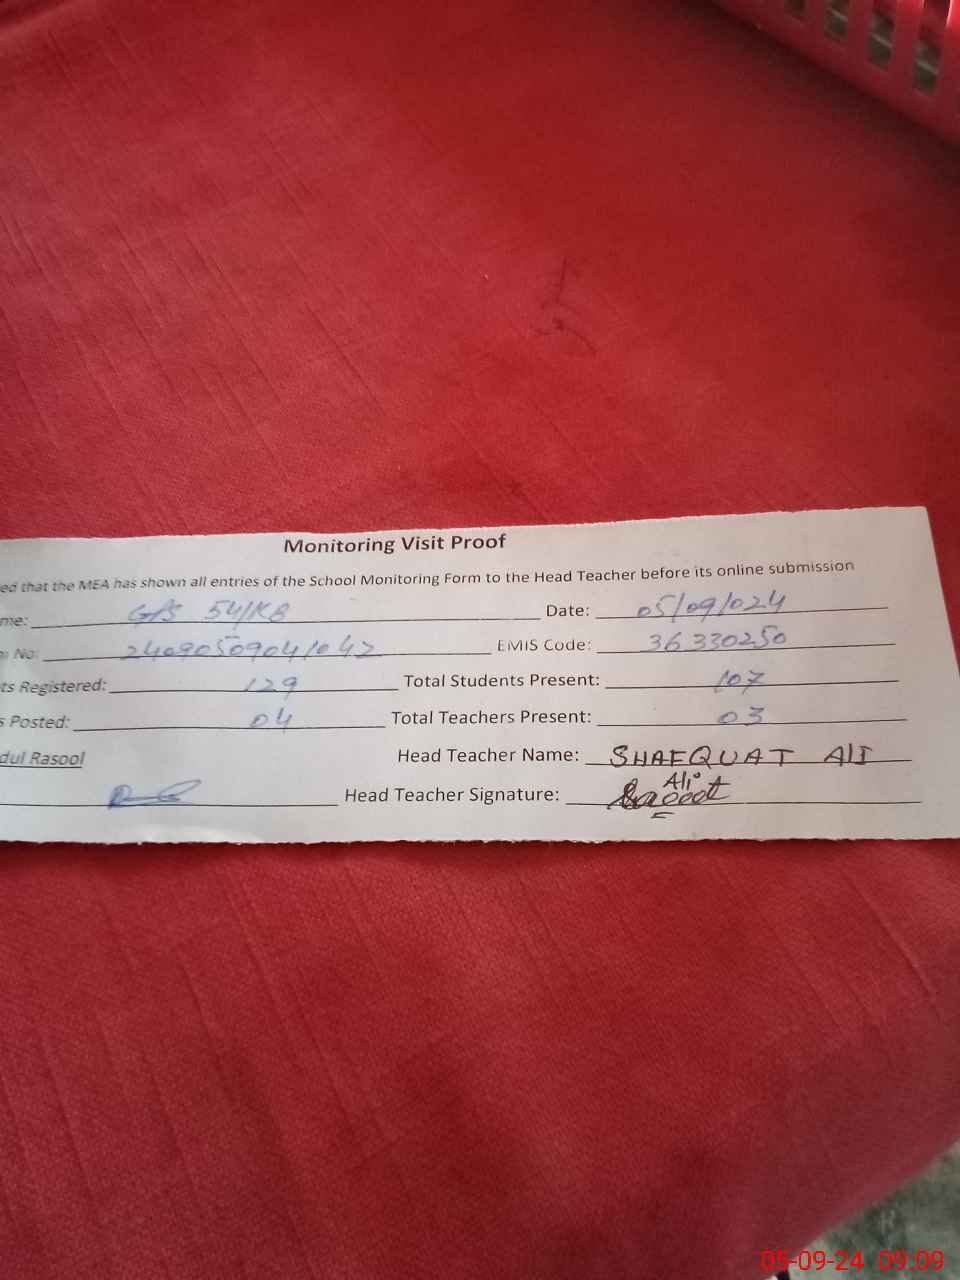 Monitoring Visit Proof
ed that the MEA has shown all entries of the School Monitoring Form to the Head Teacher before its online submission
me: GPS 54/KB Date: 05/09/024
No: 24090509041042 EMIS Code: 36330250
ts Registered: 129 Total Students Present: 107
s Posted: 04 Total Teachers Present: 03
dul Rasool Head Teacher Name: SHAFQUAT ALI
Head Teacher Signature: Ali
05-09-24 09:09